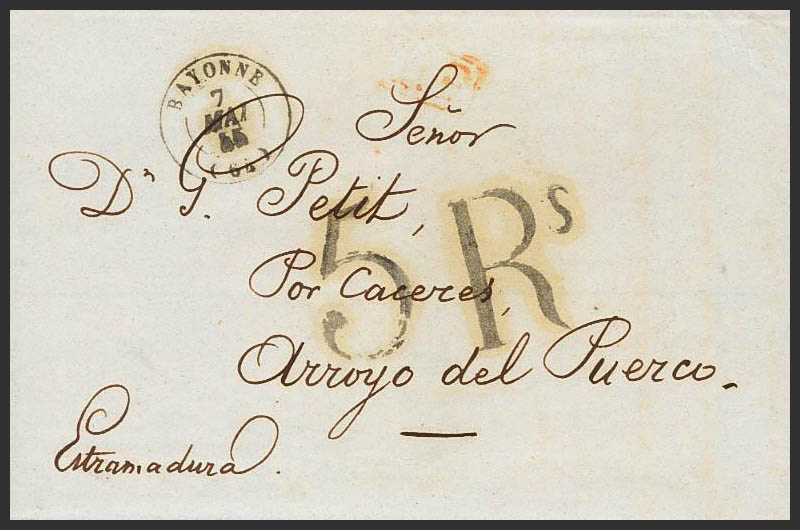 BAYONNE
7
MAI
(64)
Señor
Dn G. Petit,
5 Rs
Por Caceres,
Arroyo del Puerco.
Estramadura.